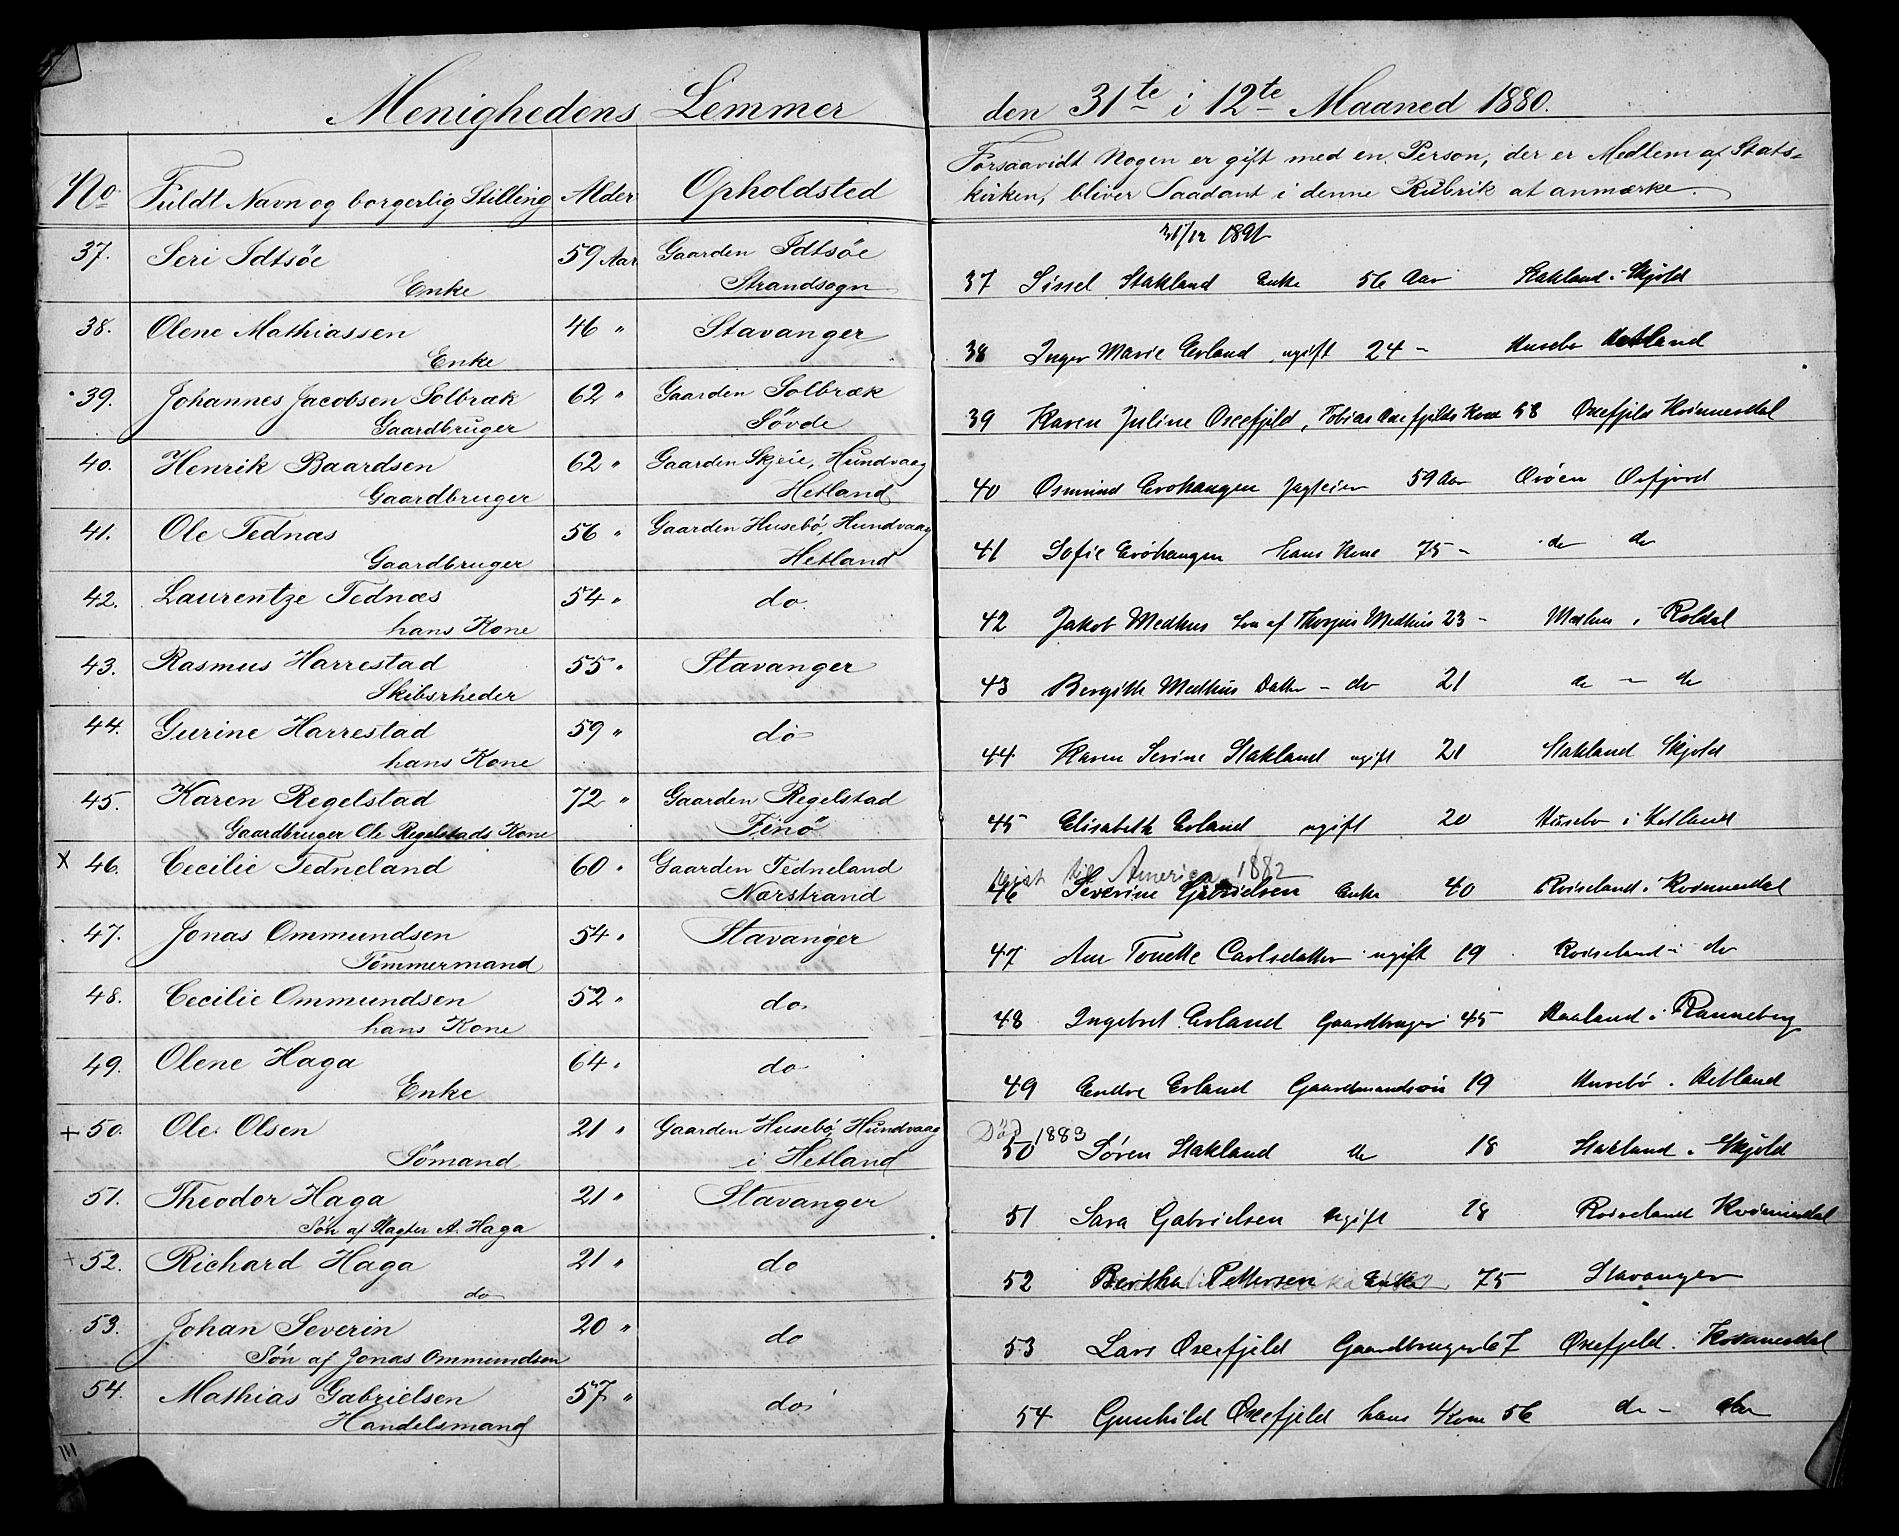 Menighedens Lemmer
No. Fuldt Navn og borgerlig Stilling Alder Opholdsted
37. Seri Idtsöe 59 Aar Gaarden Idtsöe
Enke Strandsogn
38. Olene Mathiassen 46 " Stavanger
Enke
39. Johannes Jacobsen Solbræk 62 " Gaarden Solbræk
Gaardbruger Sövde
40. Henrik Baardsen 62 " Gaarden Skjeie, Hundvaag
Gaardbruger Hetland
41. Ole Tednæs 56 " Gaarden Husebö, Hundvaag
Gaardbruger Hetland
42. Laurentze Tednæs 54 " do.
hans Kone
43. Rasmus Harrestad 55 " Stavanger
Skibsrheder
44. Gurine Harrestad 59 " do
hans Kone
45. Karen Regelstad 72 " Gaarden Regelstad
Gaardbruger Ole Regelstads Kone Finö
x 46. Cecilie Tedneland 60 " Gaarden Tedneland
Narstrand
47. Jonas Ommundsen 54 " Stavanger
Tömmermand
48. Cecilie Ommundsen 52 " do
hans Kone
49. Olene Haga 64 " do
Enke
+ 50. Ole Olsen 21 " Gaarden Husebö, Hundvaag
Sömand i Hetland
51. Theodor Haga 21 " Stavanger
Sön af Slagter A. Haga
+ 52. Richard Haga 21 " do
do
53. Johan Severin 20 " do
Sön af Jonas Ommundsen
54. Mathias Gabrielsen 57 " do
Handelsmand
den 31te i 12te Maaned 1880.
Forsaavidt Nogen er gift med en Person, der er Medlem af Stats=
kirken, bliver Saadant i denne Rubrik at anmærke.
31/12 1891
37 Sissel Stakland Enke 56 Aar Stakland i Skjold
38 Inger Marie Erland ugift 24 - Husebö Hetland
39 Karen Juline Oxefjeld, Tobias Oxefjelds Kone 58 Oxefjeld Kvinnesdal
40 Osmund Jagteier 59 Aar
41 Sofie hans Kone 75 - do do
42 Jakob Medhus Sön af Medhus 23 - Medhus i Roldal
43 Bergitte Medhus Datter - do 21 do - do
44 Karen Serine Stakland ugift 21 Stakland Skjold
45 Elisabeth Erland ugift 20 Husebö i Hetland
rejst til America 1882
46 Severine Gabrielsen Enke 40 Röiseland i Kvinnesdal
47 Ane Tonette Carlsdatter ugift 19 Röiseland i do
48 Ingebret Erland Gaardbruger 45 Haaland i Ranneberg
49 Endre Erland Gaardmandssön 19 Husebö i Hetland
Död 1883
50 Sören Stakland do 18 Stakland i Skjold
51 Sara Gabrielsen ugift 18 Röiseland Kvinnesdal
52 Bertha Pettersen Enke 75 Stavanger
53 Lars Oxefjeld Gaardbruger 67 Oxefjeld Kvinnesdal
54 Gunhild Oxefjeld hans Kone 56 do - do